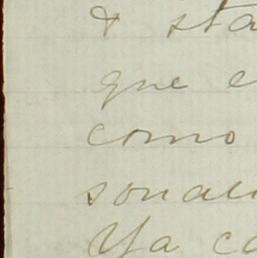 & sta
que e
como
sonal
Ya co